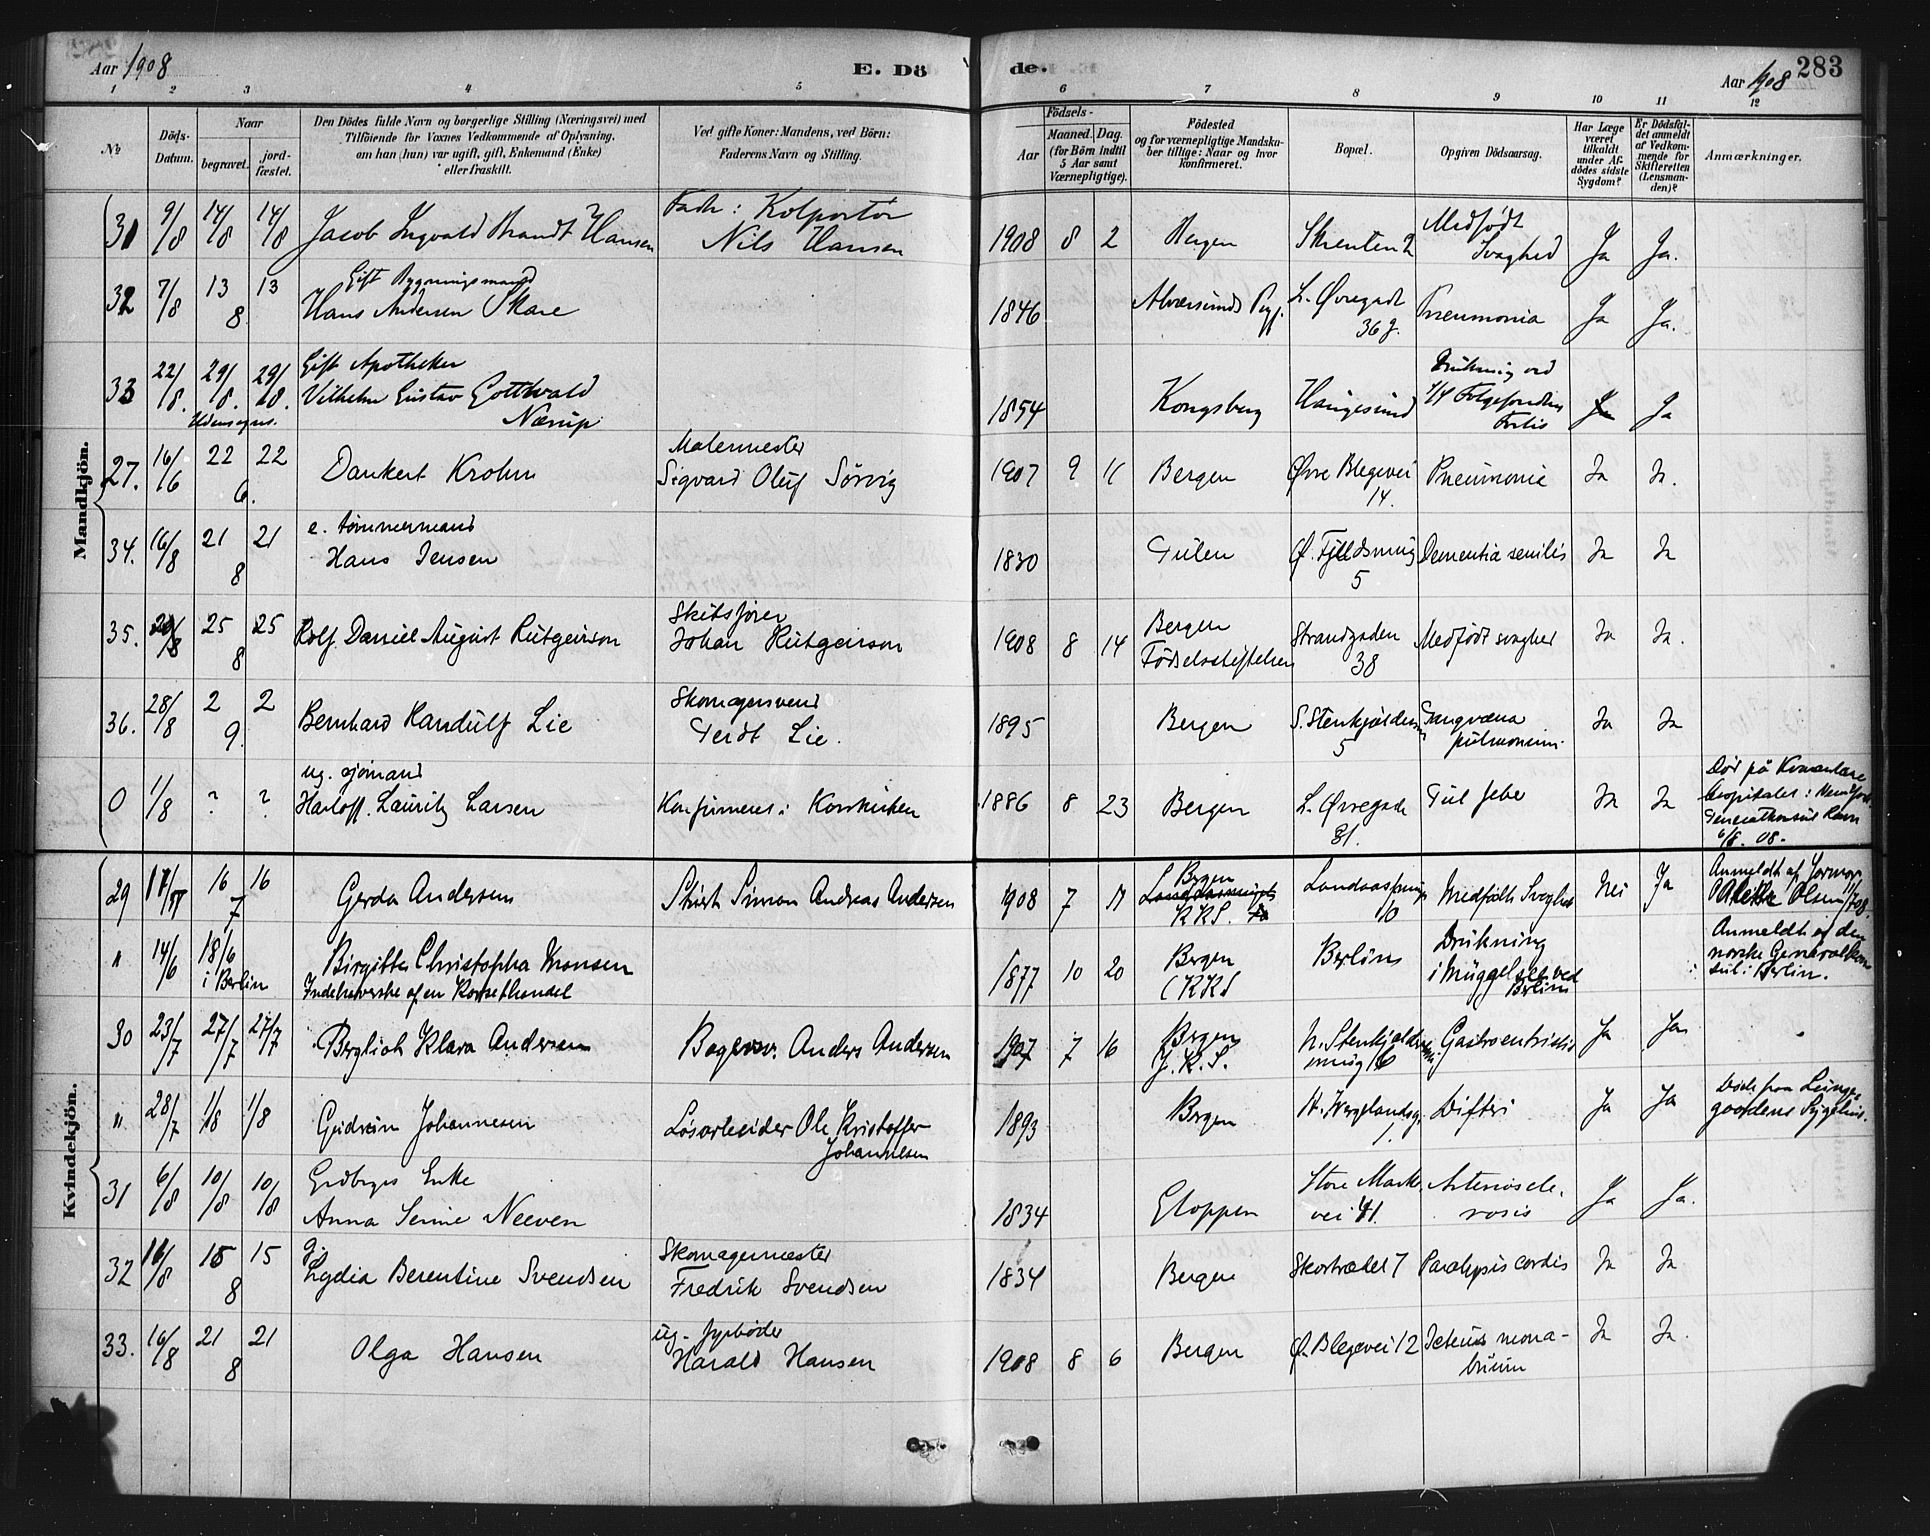 Aar 1908
E. Dö
de.
Aar 1908
283
1 2 3 4 5 6 7 8 9 10 11 12
№
Döds-Datum.
Naar
begravet.
jord-fæstet.
Den Dödes fulde Navn og borgerlige Stilling (Næringsvei) med
Tilföiende for Voxnes Vedkommende af Oplysning,
om han (hun) var ugift, gift, Enkemand (Enke)
eller fraskilt.
Ved gifte Koner: Mandens, ved Börn:
Faderens Navn og Stilling.
Födsels-
Aar
Maaned. Dag.
(for Börn indtil
5 Aar samt
Værnepligtige).
Födested
og for værnepligtige Mandska-
ber tillige: Naar og hvor
konfirmeret.
Bopæl.
Opgiven Dödsaarsag.
Har Læge
været
tilkaldt
under Af-
dödes sidste
Sygdom?
Er Dödsfal-
det anmeldt
af Vedkom-
mende for
Skifteretten
(Lensman-
den)?
Anmærkninger.
Mandkjön.
31 9/8 14/8 14/8 Jacob Ingvald Brandt Hansen Fader: Kolportör Nils Hansen 1908 8 2 Bergen Skrenten 2 Medfödt Svaghed Ja Ja.
32 7/8 13 8 13 Gift Bygningsmand Hans Andersen Skare 1846 Alversunds Pgj. L. Øvregade 36 Pneumonia Ja Ja.
33 22/8. 29/8. 29/8. Gift Apotheker Vilhelm Gustav Gottwald Nærup 1854 Kongsberg Haugesund Drukning ved Forlis Ja Ja
Udensogns.
27. 16/6 22 6. 22 Dankert Krohn Malermester Sigvard Oluf Sörvig 1907 9 11 Bergen Øvre Blegevei 14. Pneumonia Ja Ja.
34. 16/8 21 8 21 e. tömmermand Hans Jensen 1830 Gulen Ø. Fjeldsmug 5 Dementia senilis Ja Ja
35. 20/8 25 8 25 Rolf Daniel August Rütgerson Skibsförer Johan Rütgerson 1908 8 14 Bergen Födselsstiftelsen Strandgaden 38 Medfödt svaghed Ja Ja.
36. 28/8 2 9. 2 Bernhard Randulf Lie Skomagersvend Gerdt Lie. 1895 Bergen S. Stenkjelders 5 Gangræna pulmonum. Ja Ja
0 1/8 ? ? ug. sjömand Harloff. Lauritz Larsen Konfirmeret i Korskirken 1886 8 23 Bergen L. Øvregade 31. Gul feber Ja Ja Död på Hospitalet i Generalkonsul Ravn 6/8. 08.
Kvindekjön.
29 16 7 16 Gerda Andersen Simon Andreas Andersen 1908 7 11 Bergen K K S. Landaassmug 10 Medfödt Svaghed Nei Ja Anmeldt af Jormor Olsen 11/7 08.
" 14/6 18/6 i Berlin Birgitte Christopha Monsen Indehaverske af en Korsethandel 1877 10 20 Bergen (KKS Berlin Drukning i Müggelsee ved Berlin Anmeldt af den norske Generalkonsul i Berlin.
30 23/7 27/7 27/7 Bergliot Klara Andersen Bagersv. Anders Andersen 1907 7 16 Bergen J. K. S. N. Stenkjeldersmug 16 Gastroentritis Ja Ja
" 28/7 1/8 1/8 Gudrun Johannesen Lösarbeider Ole Kristoffer Johannesen 1893 Bergen H. Wergelandsg. 1. Difteri Ja Ja Döde paa Lungegaardens Sygehus.
31 6/8 10/8 10/8 Enke Anna Serine Neeven 1834 Gloppen Store Markevei 41. Arteriosclerosis Ja Ja.
32 11/8 15 8 15 g. Lydia Berentine Svendsen Skomagermester Fredrik Svendsen 1834 Bergen Skostrædet 7 Paralysis cordis Ja Ja
33. 16/8 21 8 21 Olga Hansen ug. fyrböder Harald Hansen 1908 8 6 Bergen Ø. Blegevei 12 Icterus Ja Ja.